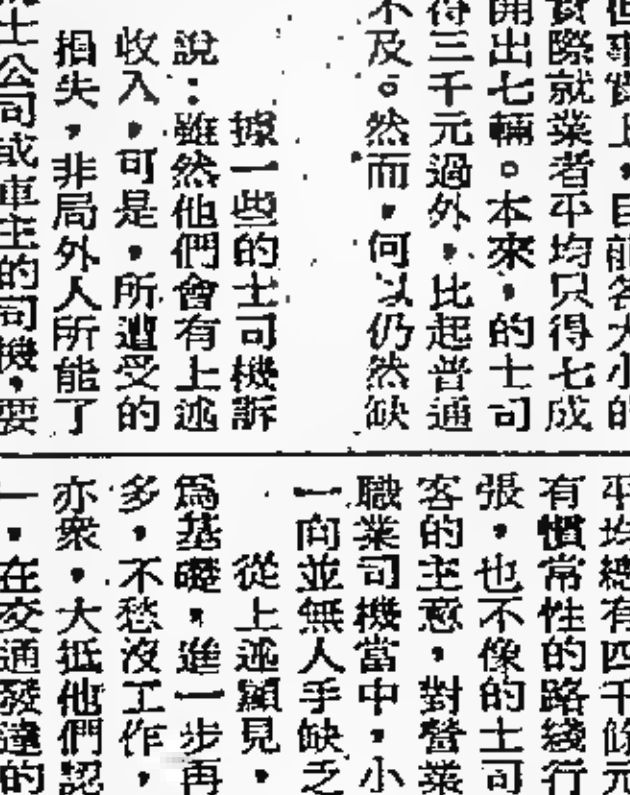 但事實上，目前各大小的
實際就業者平均只得七成
開出七輛。本來，的士司
得三千元過外，比起普通
不及。然而，何以仍然缺
據一些的士司機訴
說：雖然他們會有上述
收入，可是，所遭受的
損失，非局外人所能了
士公司或車主的司機，要
平均總有四千餘元
有慣常性的路綫行
張，也不像的士司
客的主意，對營業
職業司機當中，小
一向並無人手缺乏
從上述顯見，
為基礎，進一步再
多，不愁沒工作，
亦衆，大抵他們認
一，在交通發達的